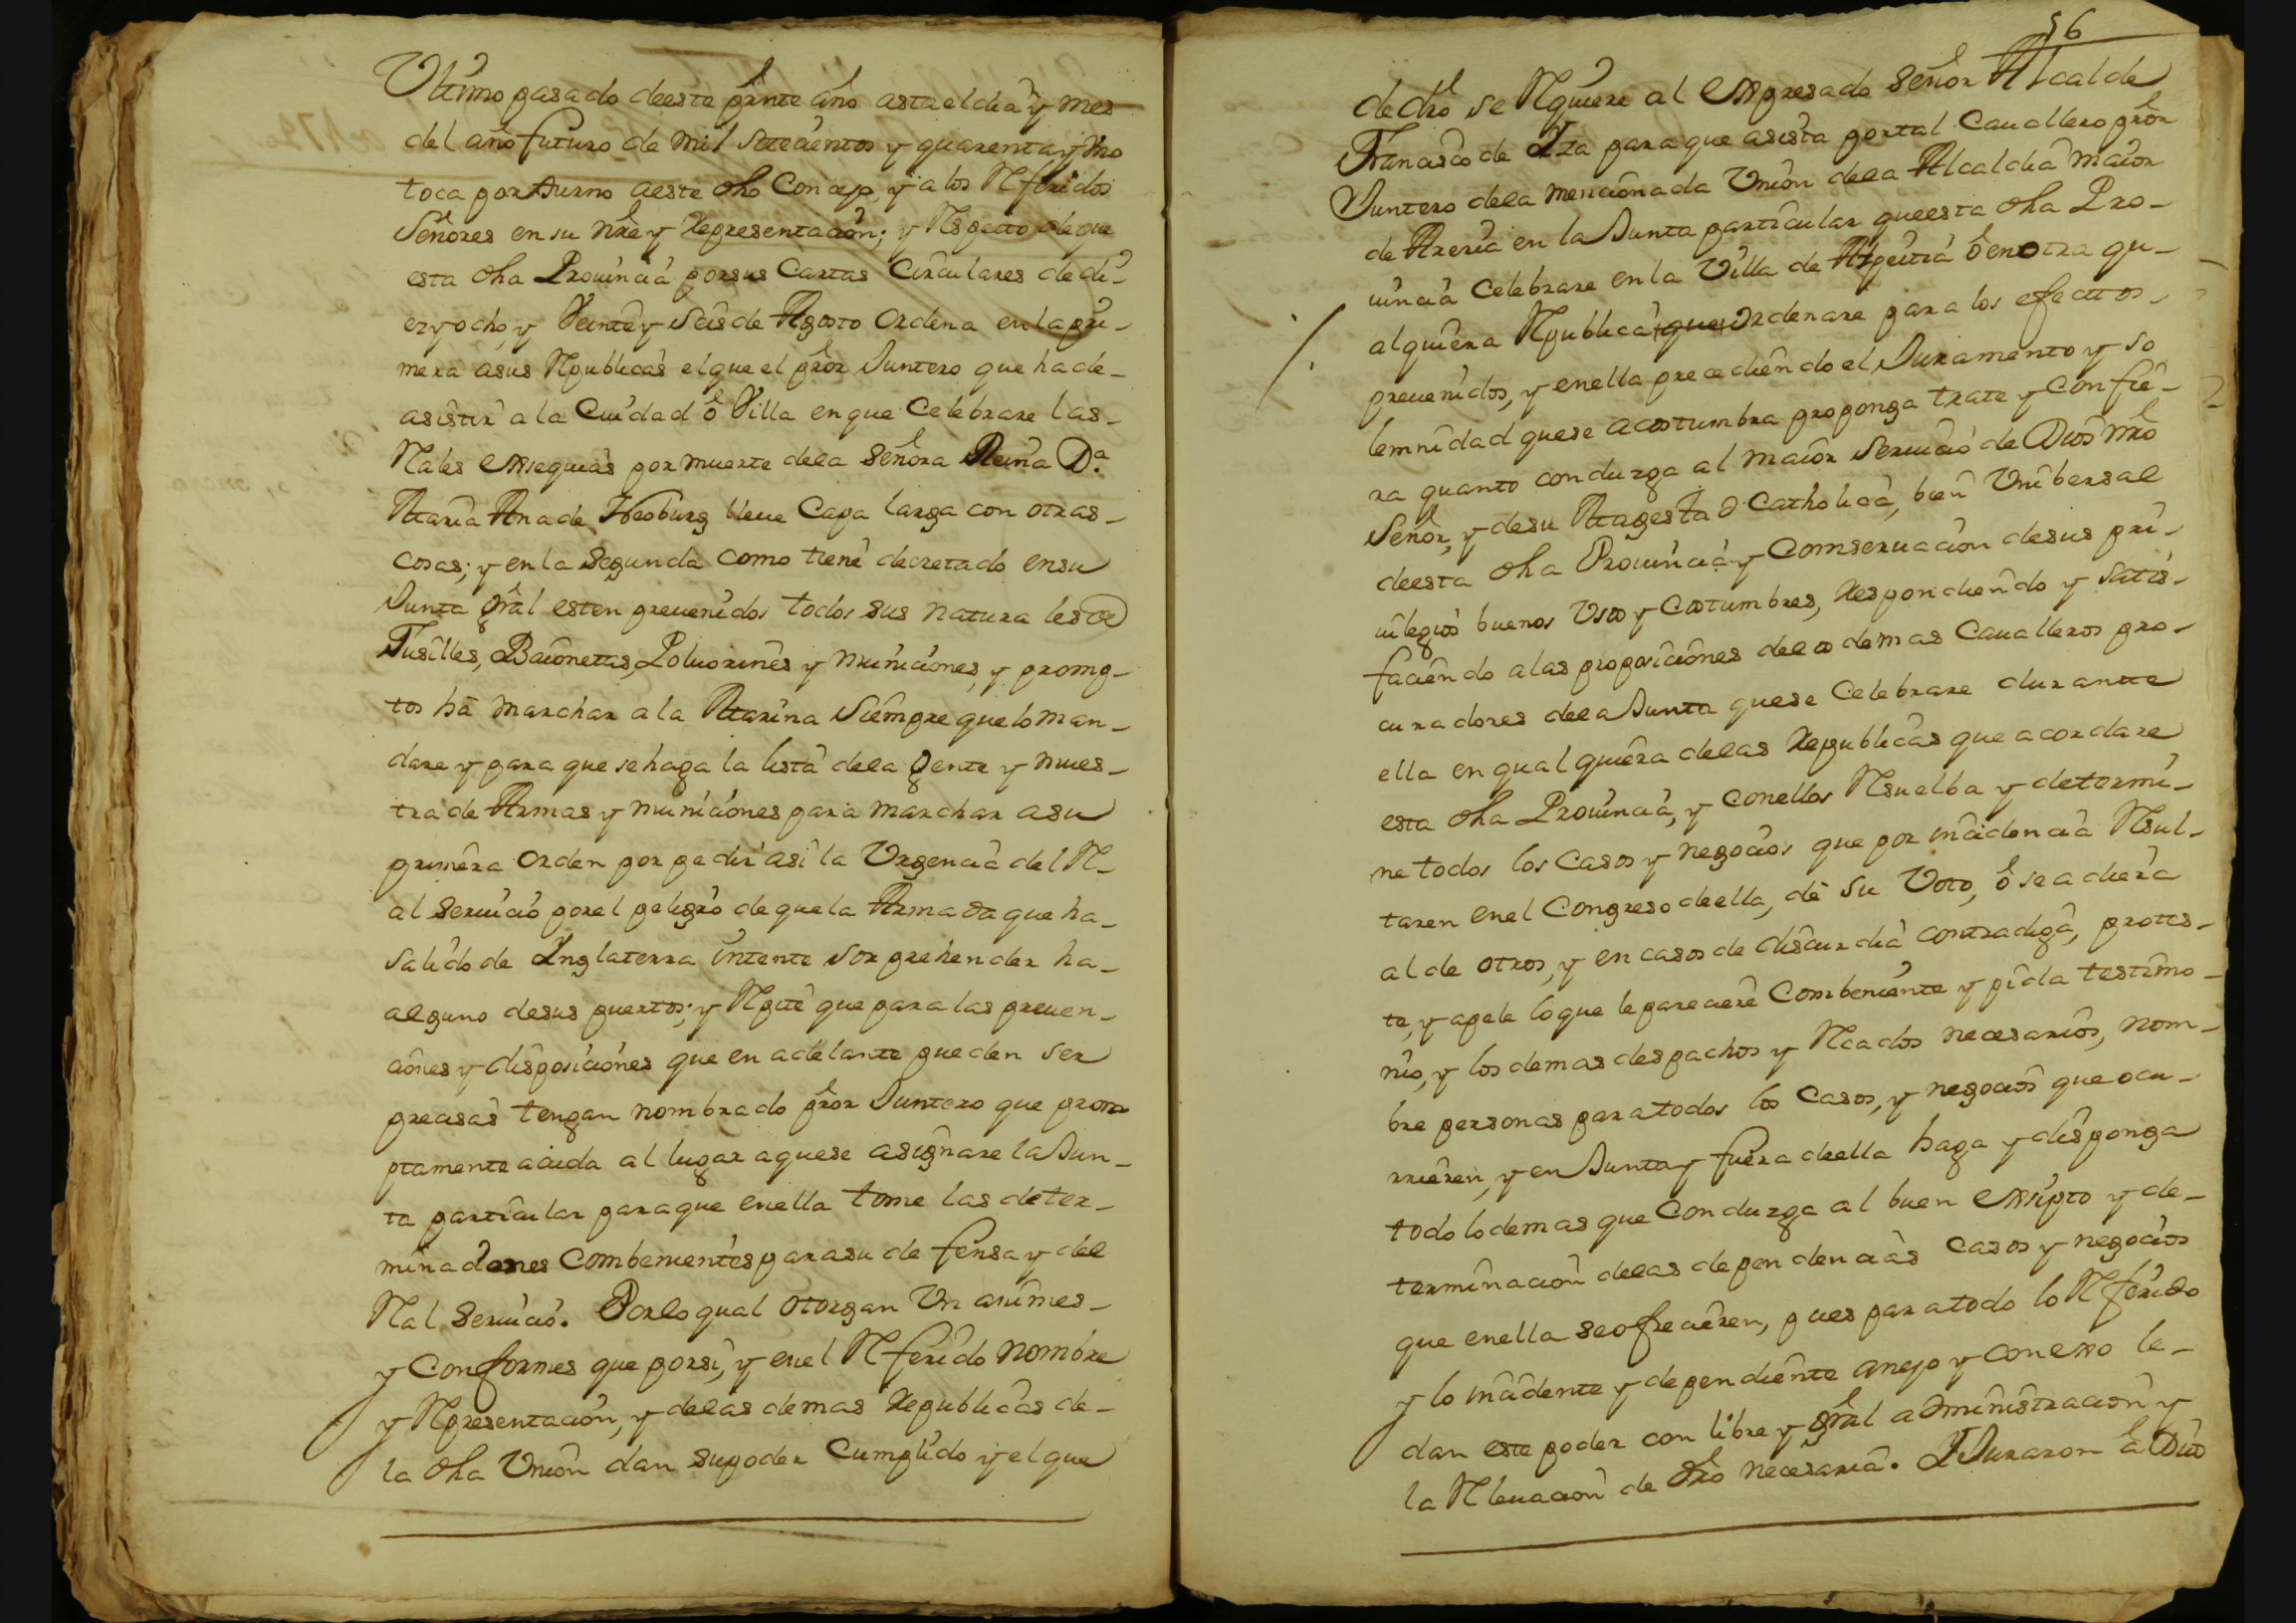 Vltimo pasado deeste prnte año asta el dia y mes
del año futuro de mil setecientos y quarenta y Vno
toca por turno aeste dho Concejo, y a los Referidos
Señores en su nre y Representacion; y Respecto de que
esta dha Prouincia por sus Cartas Circulares de di-
ez y ocho, y Veinte y Seis de Agosto Ordena en la pri-
mera asus Republicas el que el pror Juntero que ha de-
asistir a la Ciudad ô Villa en que Celebrare las-
Rales exsequias por muerte dela Señora Reina Da.
Maria Ana de Neoburg lleue Capa larga con otras-
cosas; y en la segunda como tiene decretado en su
Junta gral esten preuenidos todos sus naturales de
Fusilles, Baionetas, Poluorines y municiones, y promp-
tos hâ marchar a la Marina Siempre que lo man-
dare y para que se haga la lista dela gente y mues-
tra de Armas y municiones para marchar asu
primera Orden por pedir asi la Vrgencia del Re-
al Seruicio por el peligro de que la Armada que ha-
salido de Inglaterra intente sorprehender ha-
alguno desus puertos; y Repite que para las preuen-
ciones y disposiciones que en adelante pueden ser
precisas tengan nombrado pror Juntero que prom
ptamente acuda al lugar aquese asignare la Jun-
ta particular paraque enella tome las deter-
minaciones Combenientes parasu defensa y del
Real Seruicio. Porlo qual otorgan Vnanimes-
y Conformes que porsi, y en el Referido nombre
y Representacion, y delas demas Republicas de-
la dha Vnion dan supoder Cumplido y el que
56
de dro se Requiere al expresado Señor Alcalde
Francisco de Iza para que asista por tal Cauallero pror
Juntero dela mencionada Vnion dela Alcaldia maior
de Areria en la Junta particular queesta dha Pro-
uincia Celebrare en la Villa de Azpeitia ô en otra qu-
alquiera Republica que Ordenare para los efectos-
preuenidos, y enella precediendo el Juramento y so
lemnidad quese acostumbra proponga trate y Confie-
ra quanto conduzga al maior Seruicio de Dios nro
Señor, y desu Magestad Catholica, bien Vnibersal
deesta dha Prouincia y Comseruacion desus pri-
uilegios buenos Vsos y Costumbres, Respondiendo y satis-
faciendo alas proposiciones delos demas Caualleros pro-
curadores dela Junta quese Celebrare durante
ella en qualquiera delas Republicas que acordare
esta dha Prouincia, y conellos Resuelba y determi-
ne todos los Casos y negocios que por incidencia Resul-
taren en el Congreso deella, dê su Voto, ô se adiera
al de otros, y en casos de discurdia contradiga, protes-
te, y apele loque le pareciere Combeniente y pida testimo-
nio, y los demas despachos y Recados necesarios, nom-
bre personas para todos los Casos, y negocios que ocu-
rrieren, y en Junta y fuera deella haga y disponga
todo lo demas que Conduzga al buen exsipto y de-
terminacion delas dependencias Casos y negocios
que enella se ofrecieren, pues para todo lo Referido
y lo incidente y dependiente anejo y conexo le-
dan este poder con libre y gral administracion y
la Releuacion de dro necesaria. I Juraron â Dios